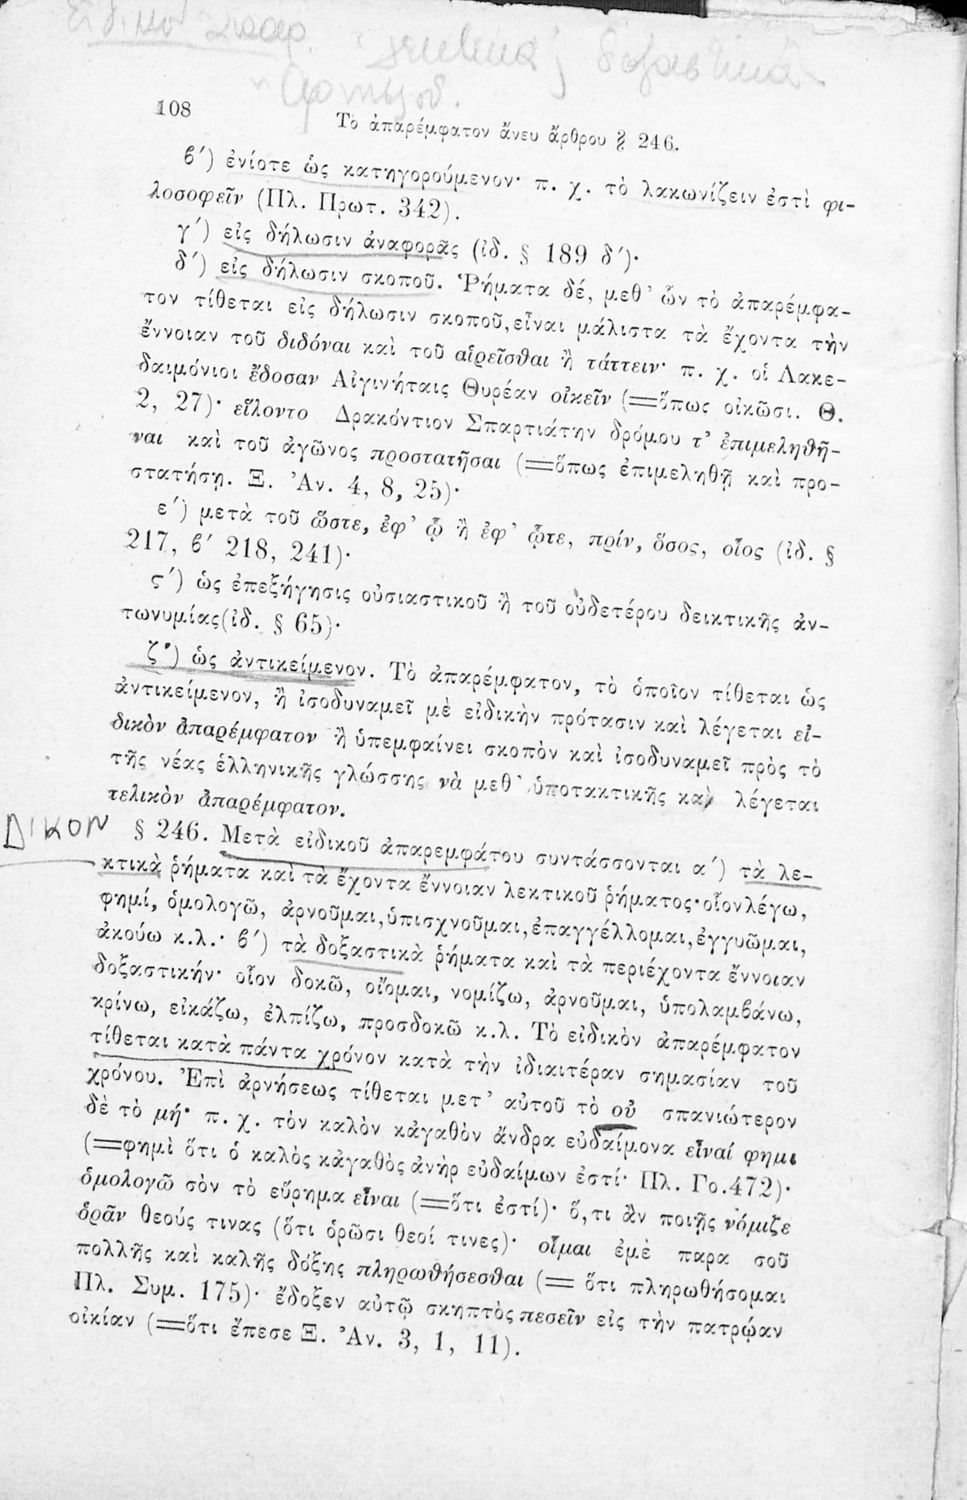 108
Τὸ ἀπαρέμφατον ἄνευ ἄρθρου § 246.
β΄) ἐνίοτε ὡς κατηγορούμενον· π. χ. τὸ λακωνίζειν ἐστὶ φι-
λοσοφεῖν (Πλ. Πρωτ. 342).
γ΄) εἰς δήλωσιν ἀναφορᾶς (ἰδ. § 189 δ΄)·
δ΄) εἰς δήλωσιν σκοποῦ. Ῥήματα δέ, μεθ’ ὧν τὸ ἀπαρέμφα-
τον τίθεται εἰς δήλωσιν σκοποῦ, εἶναι μάλιστα τὰ ἔχοντα τὴν
ἔννοιαν τοῦ διδόναι καὶ τοῦ αἱρεῖσθαι ἢ τάττειν· π. χ. οἱ Λακε-
δαιμόνιοι ἔδοσαν Αἰγινήταις Θυρέαν οἰκεῖν (=ὅπως οἰκῶσι. Θ.
2, 27)· εἵλοντο Δρακόντιον Σπαρτιάτην δρόμου τ’ ἐπιμεληθῆ-
ναι καὶ τοῦ ἀγῶνος προστατῆσαι (=ὅπως ἐπιμεληθῇ καὶ προ-
στατήσῃ. Ξ. Ἀν. 4, 8, 25)·
ε΄) μετὰ τοῦ ὥστε, ἐφ’ ᾧ ἢ ἐφ’ ᾧτε, πρίν, ὅσος, οἷος (ἰδ. §
217, β΄ 218, 241)·
ς΄) ὡς ἐπεξήγησις οὐσιαστικοῦ ἢ τοῦ οὐδετέρου δεικτικῆς ἀν-
τωνυμίας (ἰδ. § 65)·
ζ΄) ὡς ἀντικείμενον. Τὸ ἀπαρέμφατον, τὸ ὁποῖον τίθεται ὡς
ἀντικείμενον, ἢ ἰσοδυναμεῖ μὲ εἰδικὴν πρότασιν καὶ λέγεται εἰ-
δικὸν ἀπαρέμφατον ἢ ὑπεμφαίνει σκοπὸν καὶ ἰσοδυναμεῖ πρὸς τὸ
τῆς νέας ἑλληνικῆς γλώσσης νὰ μεθ’ ὑποτακτικῆς καὶ λέγεται
τελικὸν ἀπαρέμφατον.
ΔΙΚΟΝ § 246. Μετὰ εἰδικοῦ ἀπαρεμφάτου συντάσσονται α΄) τὰ λε-
κτικὰ ῥήματα καὶ τὰ ἔχοντα ἔννοιαν λεκτικοῦ ῥήματος· οἷον λέγω,
φημί, ὁμολογῶ, ἀρνοῦμαι, ὑπισχνοῦμαι, ἐπαγγέλλομαι, ἐγγυῶμαι,
ἀκούω κ.λ.· β΄) τὰ δοξαστικὰ ῥήματα καὶ τὰ περιέχοντα ἔννοιαν
δοξαστικήν· οἷον δοκῶ, οἴομαι, νομίζω, ἀρνοῦμαι, ὑπολαμβάνω,
κρίνω, εἰκάζω, ἐλπίζω, προσδοκῶ κ.λ. Τὸ εἰδικὸν ἀπαρέμφατον
τίθεται κατὰ πάντα χρόνον κατὰ τὴν ἰδιαιτέραν σημασίαν τοῦ
χρόνου. Ἐπὶ ἀρνήσεως τίθεται μετ’ αὐτοῦ τὸ οὐ σπανιώτερον
δὲ τὸ μή· π. χ. τὸν καλὸν κἀγαθὸν ἄνδρα εὐδαίμονα εἶναί φημι
(=φημὶ ὅτι ὁ καλὸς κἀγαθὸς ἀνὴρ εὐδαίμων ἐστί· Πλ. Γο. 472)·
ὁμολογῶ σὸν τὸ εὕρημα εἶναι (=ὅτι ἐστί)· ὅ,τι ἂν ποιῇς νόμιζε
ὁρᾶν θεούς τινας (ὅτι ὁρῶσι θεοί τινες)· οἶμαι ἐμὲ παρα σοῦ
πολλῆς καὶ καλῆς δόξης πληρωθήσεσθαι (= ὅτι πληρωθήσομαι
Πλ. Συμ. 175)· ἔδοξεν αὐτῷ σκηπτὸς πεσεῖν εἰς τὴν πατρῴαν
οἰκίαν (=ὅτι ἔπεσε Ξ. Ἀν. 3, 1, 11).